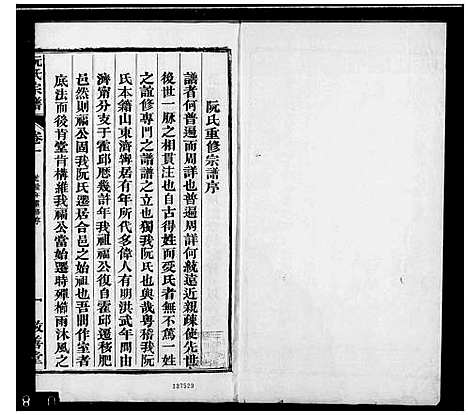 阮氏重修宗譜序
譜者何普遍而周詳也普遍周詳何統遠近親疎使先世
後世一脉之相貫注也自古得姓而受氏者無不篤一姓
之誼修專門之譜譜之立也獨我阮氏也與哉粤稽我阮
氏本籍山東濟甯居有年所代多偉人有明洪武年間由
濟甯分支于霍邱歷幾許年我祖福公復自霍邱遷移肥
邑然則福公固我阮氏遷居合邑之始祖也吾聞作室者
底法而後肯堂肯構維我福公當始遷時殫櫛雨沐風之
阮氏宗譜
卷一
一
敦善堂
137529